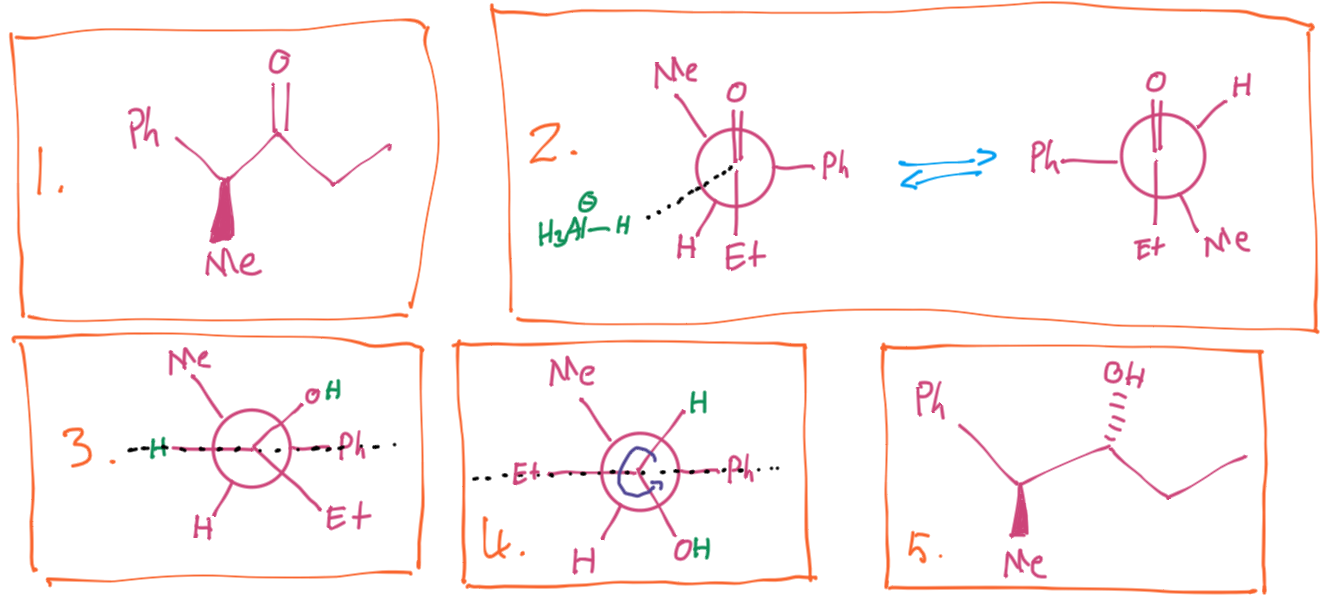 1.
O
Ph
Me
2.
Me
O
Ph
H
Et
⊖
H₃Al–H
O
H
Ph
Et
Me
3.
Me
OH
H
Ph
H
Et
4.
Me
H
Et
Ph
H
OH
5.
Ph
OH
Me